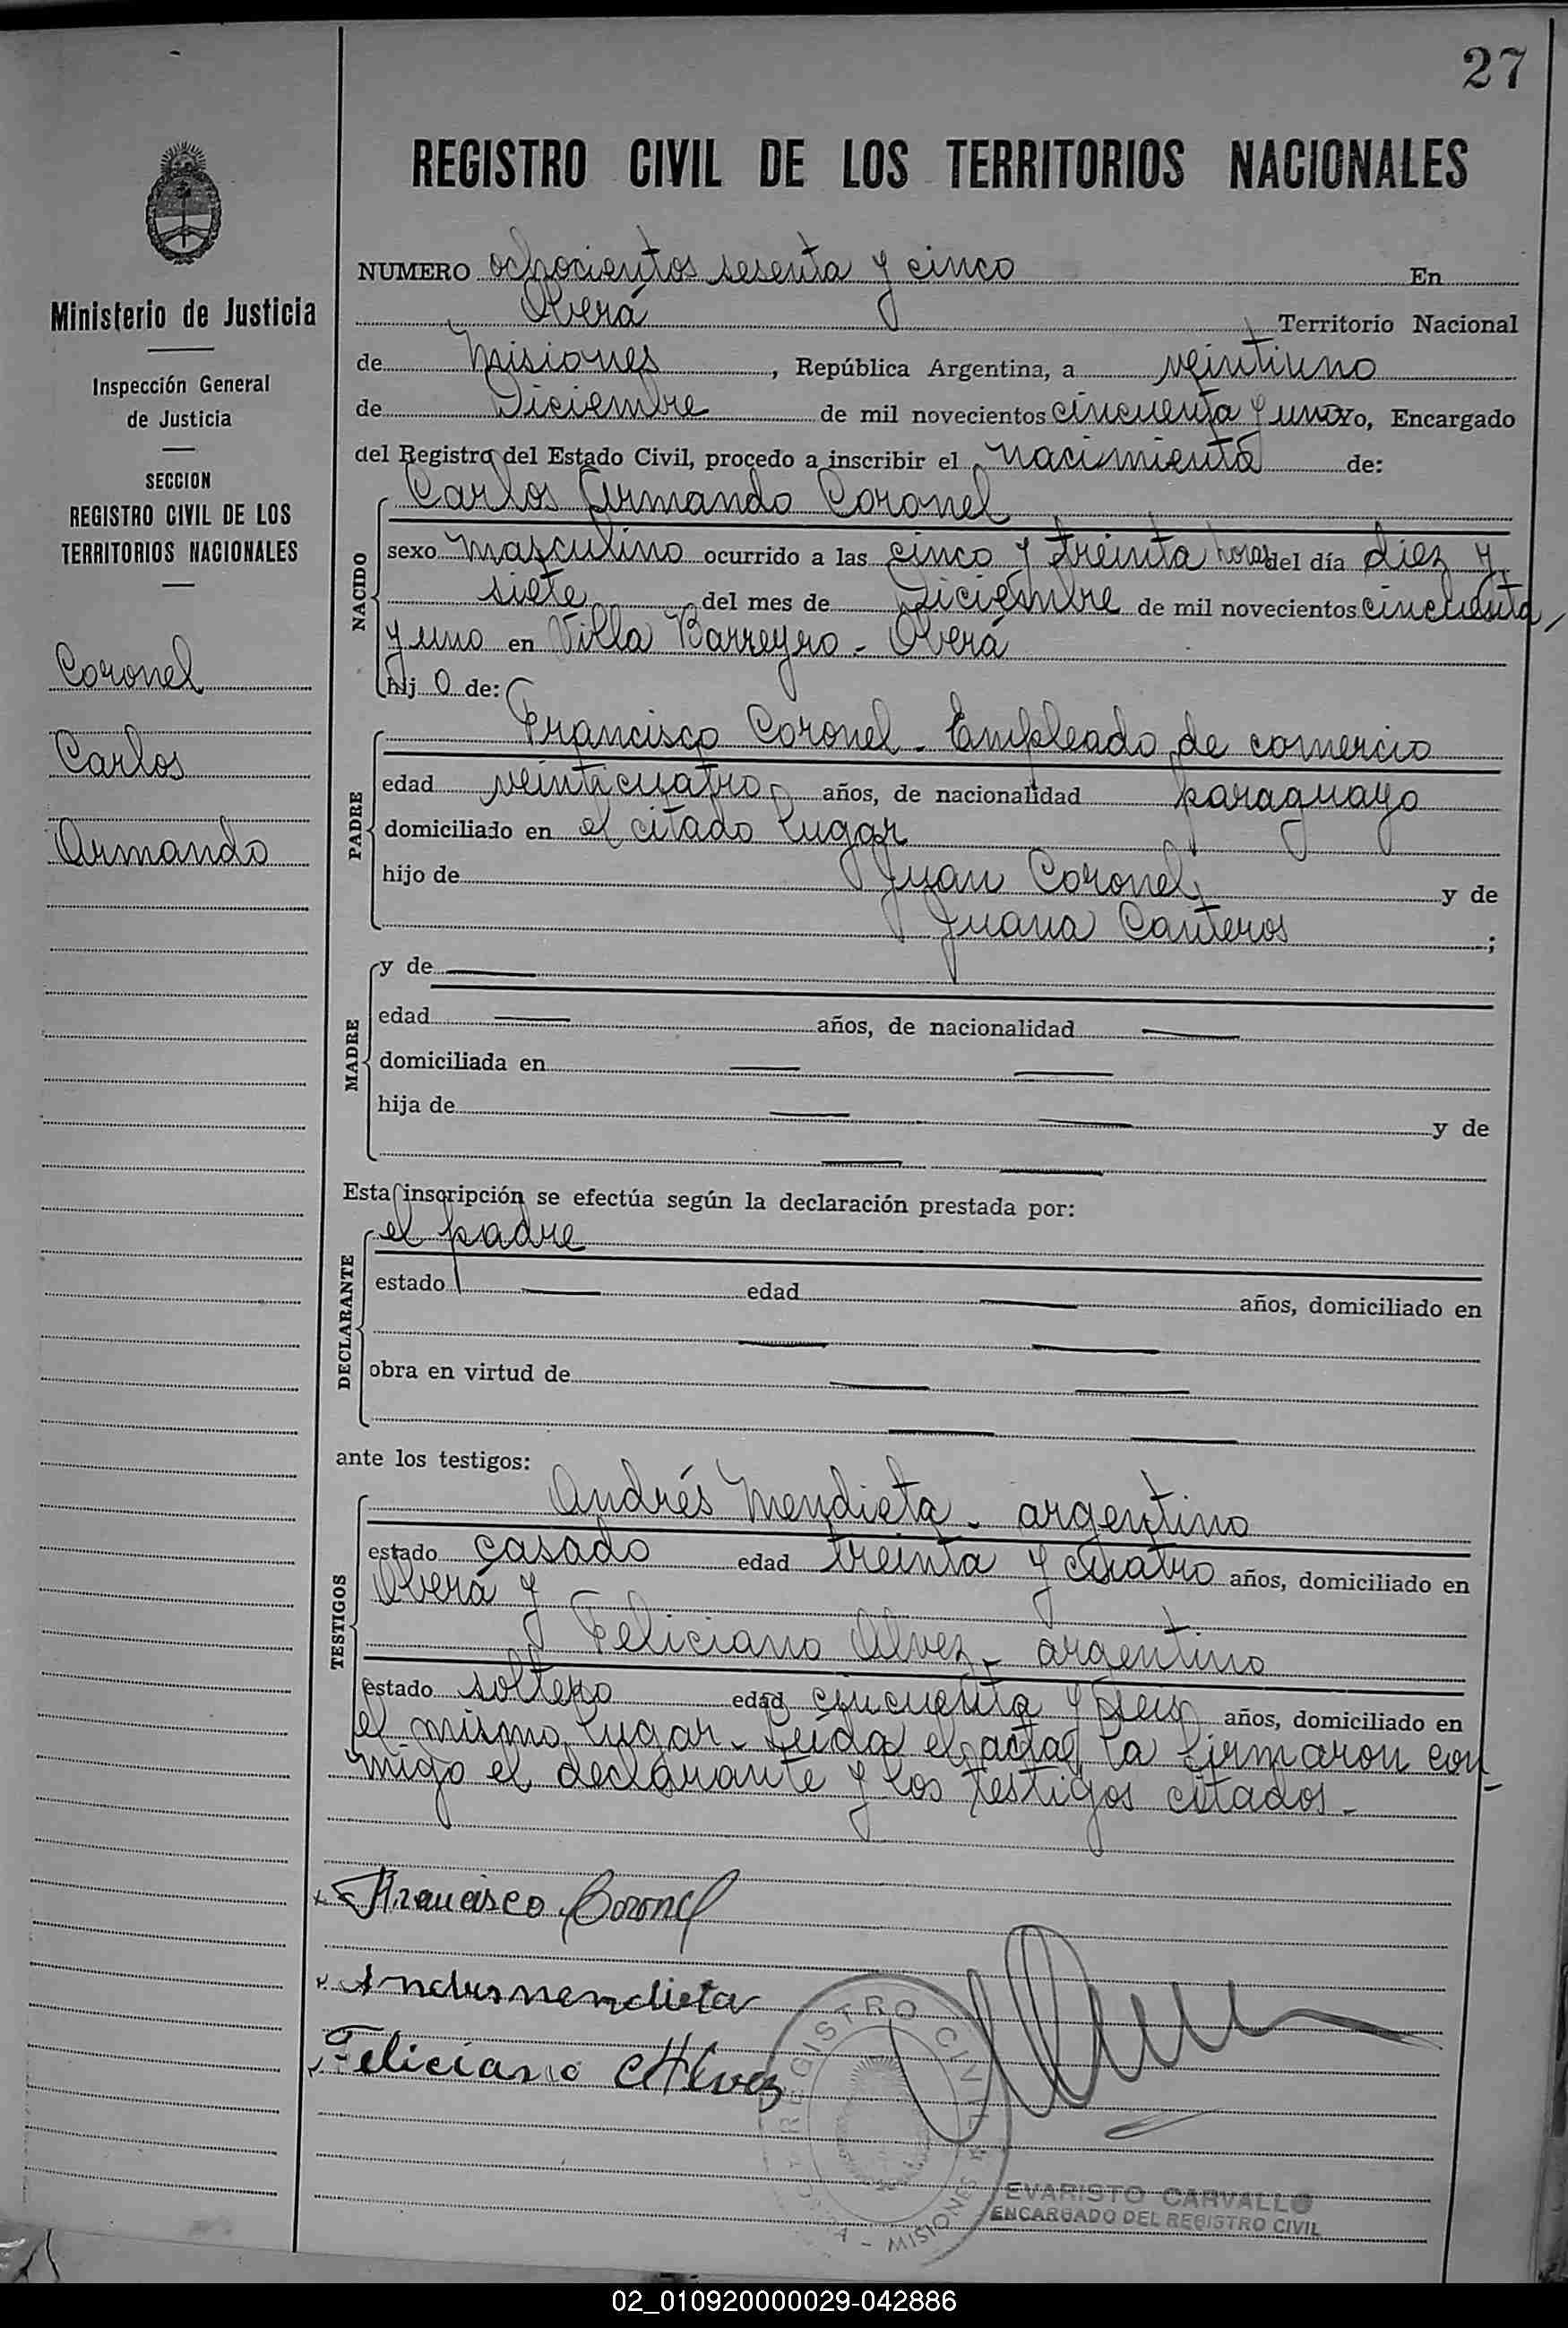 27
REGISTRO CIVIL DE LOS TERRITORIOS NACIONALES
Ministerio de Justicia
Inspección General
de Justicia
SECCION
REGISTRO CIVIL DE LOS
TERRITORIOS NACIONALES
Coronel
Carlos
Armando
NUMERO ochocientos sesenta y cinco En
Oberá Territorio Nacional
de Misiones, República Argentina, a veintiuno
de Diciembre de mil novecientos cincuenta y uno Yo, Encargado
del Registro del Estado Civil, procedo a inscribir el nacimiento de:
NACIDO
Carlos Armando Coronel
sexo masculino ocurrido a las cinco y treinta horas del día diez y
siete del mes de Diciembre de mil novecientos cincuenta
y uno en Villa Barreyro - Oberá
hij o de:
PADRE
Francisco Coronel - Empleado de comercio
edad veinticuatro años, de nacionalidad paraguayo
domiciliado en el citado lugar
hijo de Juan Coronel y de
Juana Canteros ;
MADRE
y de
edad años, de nacionalidad
domiciliada en
hija de y de
Esta inscripción se efectúa según la declaración prestada por:
DECLARANTE
el padre
estado edad años, domiciliado en
obra en virtud de
ante los testigos:
TESTIGOS
Andrés Mendieta - argentino
estado casado edad treinta y cuatro años, domiciliado en
Oberá y
Feliciano Alvez - argentino
estado soltero edad cincuenta y seis años, domiciliado en
el mismo lugar. Leída el acta, la firmaron con-
migo el declarante y los testigos citados.-
Francisco Coronel
Andres mendieta
Feliciano Alvez
REGISTRO CIVIL
MISIONES
EVARISTO CARVALLO
ENCARGADO DEL REGISTRO CIVIL
02_010920000029-042886